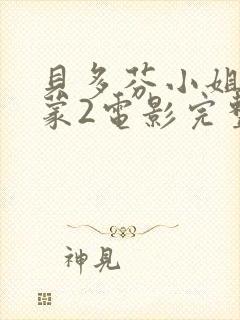 貝多芬小姐
蒙2電影完整
神見